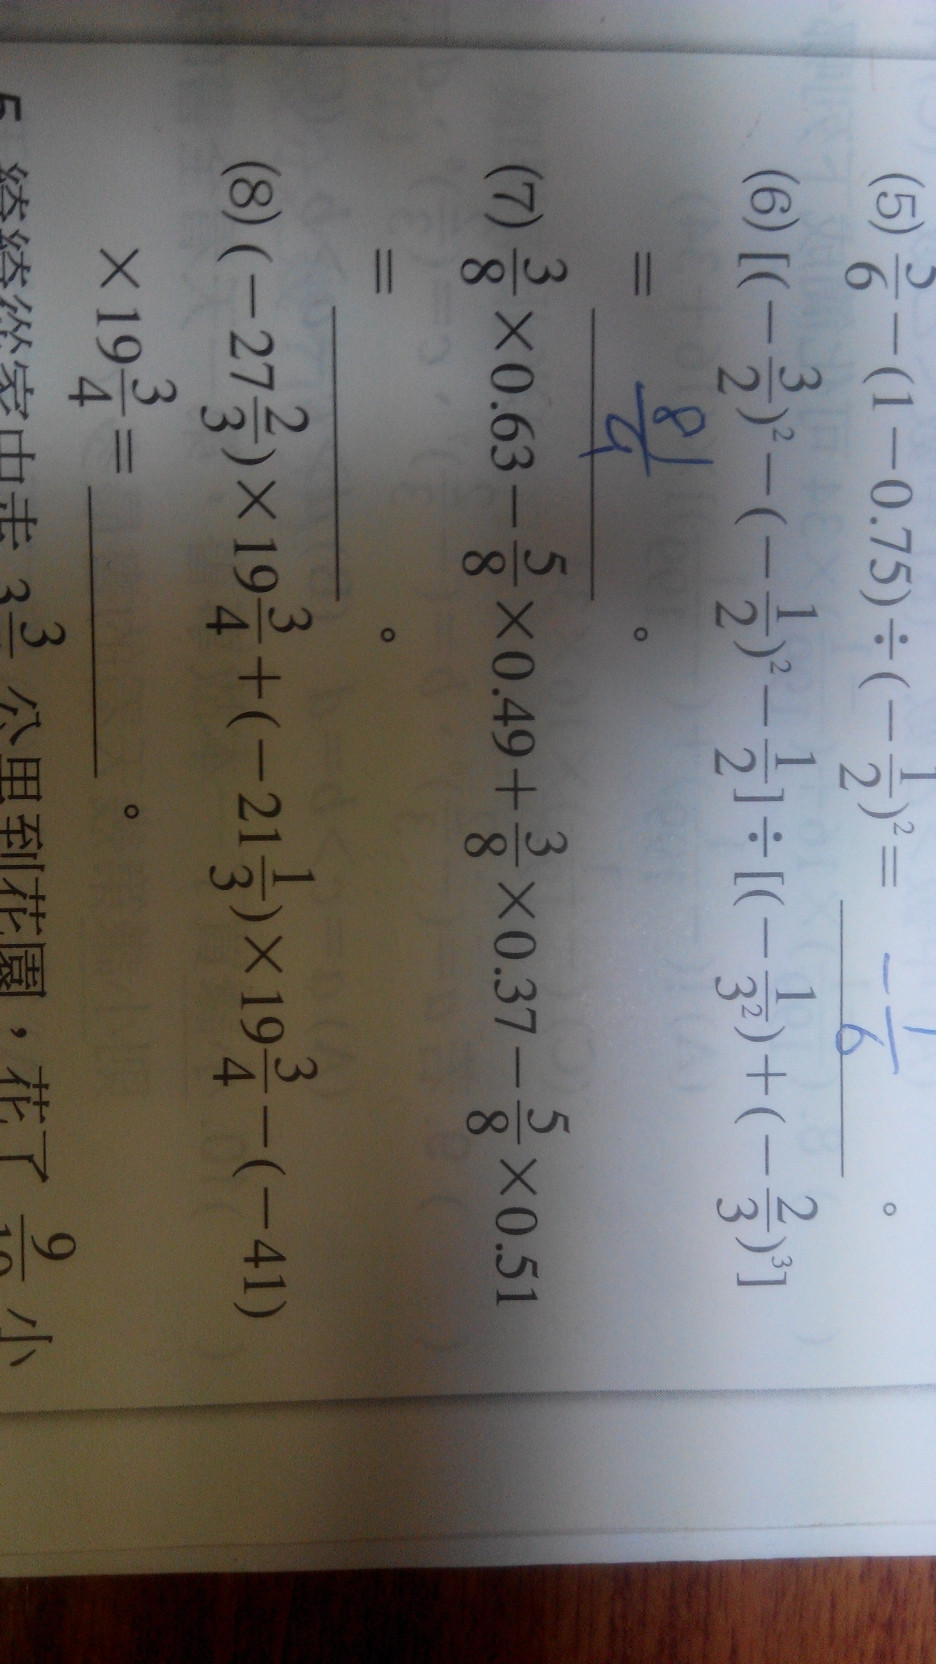 (5) 5/6 − (1 − 0.75) ÷ (− 1/2)² = − 1/6 。
(6) [(− 3/2)² − (− 1/2)² − 1/2] ÷ [(− 1/3²) + (− 2/3)³]
= 。
(7) 3/8 × 0.63 − 5/8 × 0.49 + 3/8 × 0.37 − 5/8 × 0.51
= 。
(8) (− 27 2/3) × 19 3/4 + (− 21 1/3) × 19 3/4 − (− 41)
× 19 3/4 = 。
5 綺綺從家中走 3 3/ 公里到花園，花了 9/10 小